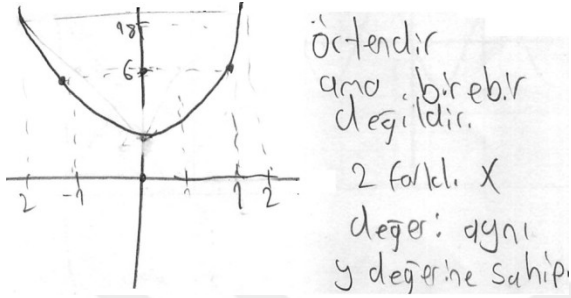 18
6
2 -1 1 2
örtendir
ama birebir
değildir.
2 farklı X
değeri aynı
y değerine sahip.